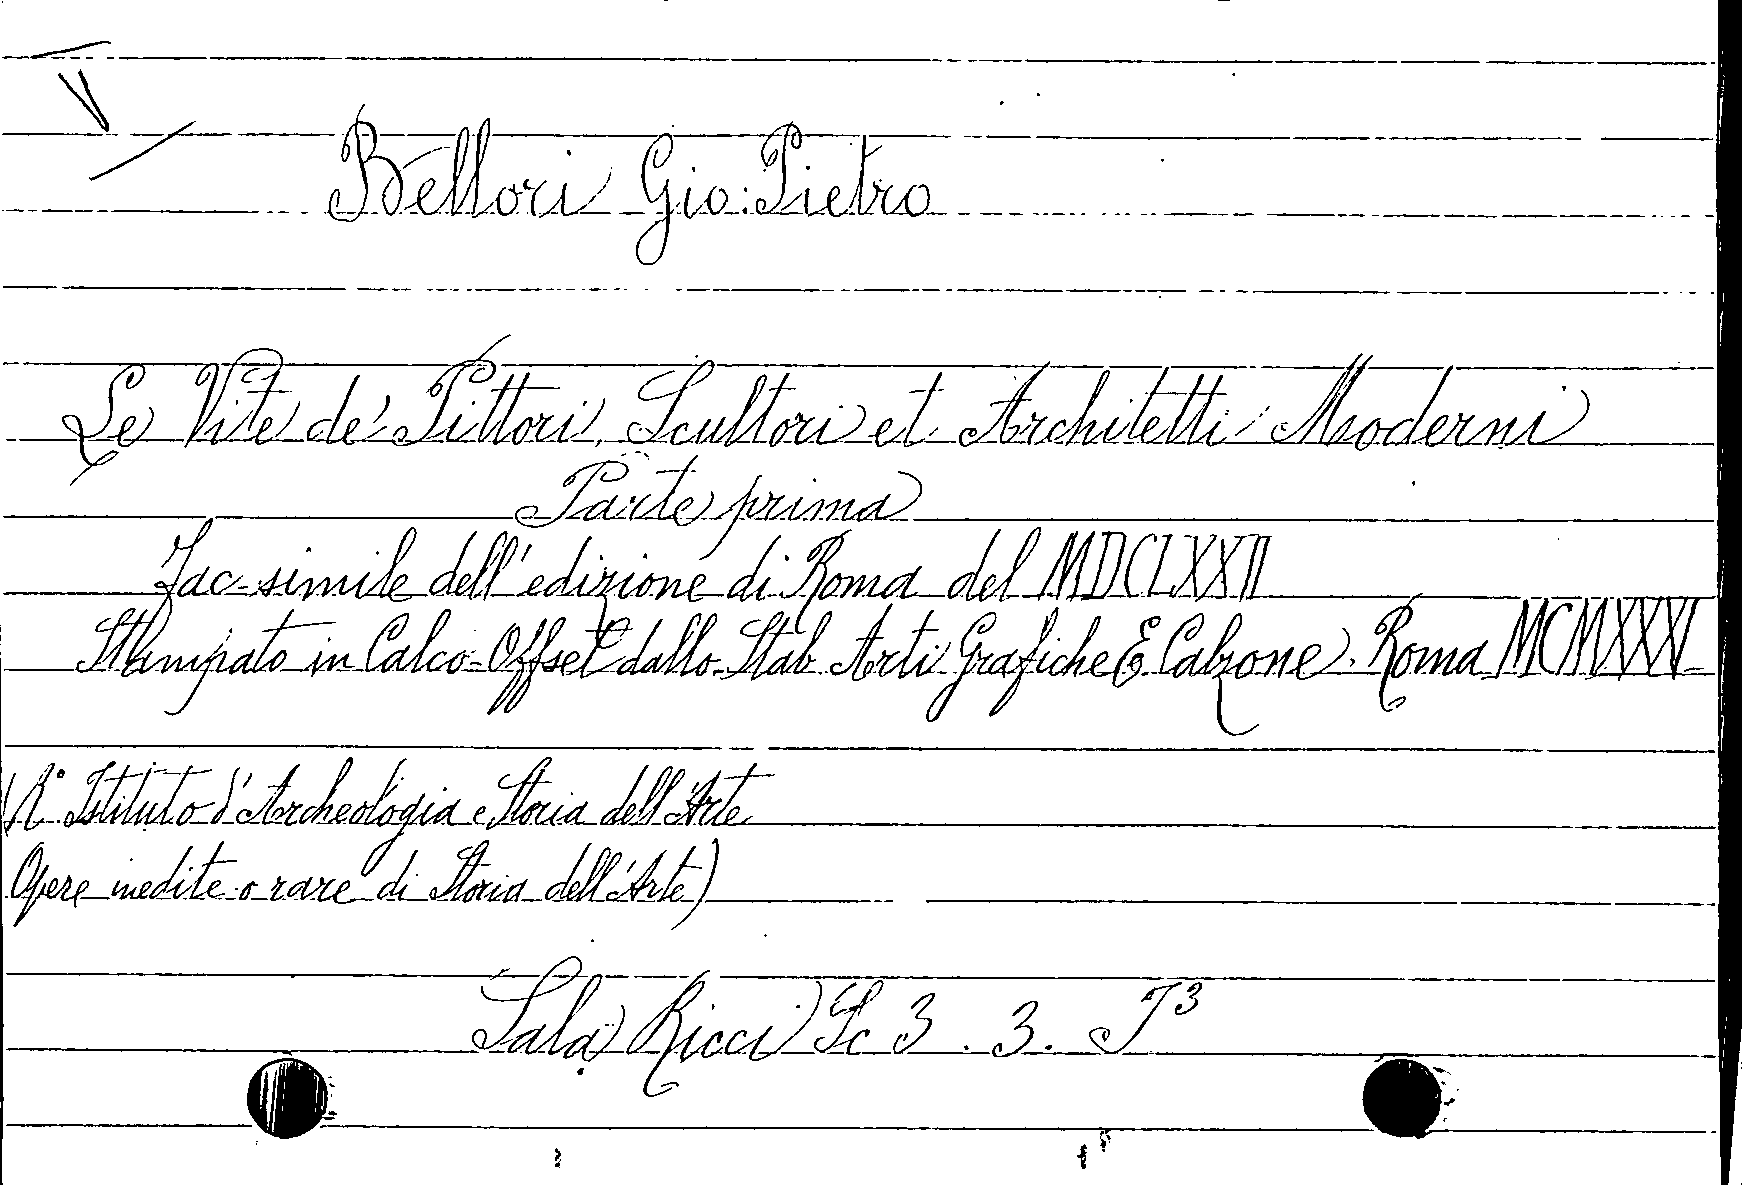 Bellori Gio: Pietro
Le Vite de' Pittori, Scultori et Architetti Moderni
Parte prima
Fac-simile dell'edizione di Roma del MDCLXXII
Stampato in Calco-Offset dallo Stab Arti Grafiche E. Calzone. Roma MCMXXXI
(R° Istituto d'Archeologia e Storia dell'Arte
Opere inedite o rare di Storia dell'Arte)
Sala Ricci Sc 3 . 3. I³